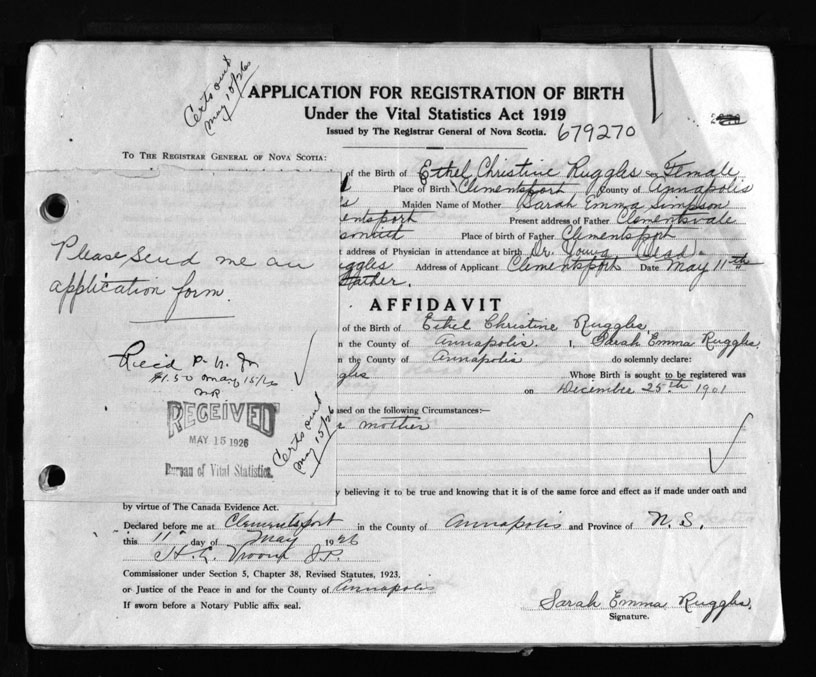 Certs out
May 15/26
APPLICATION FOR REGISTRATION OF BIRTH
Under the Vital Statistics Act 1919
Issued by The Registrar General of Nova Scotia.
679270
TO THE REGISTRAR GENERAL OF NOVA SCOTIA:
of the Birth of Ethel Christine Ruggles Sex Female
Place of Birth Clementsport County of Annapolis
Maiden Name of Mother Sarah Emma Simpson
entsport Present address of Father Clementsvale
Place of birth of Father Clementsport
t address of Physician in attendance at birth Dr. Young Dead.
uggles Address of Applicant Clementsport Date May 11th
Father.
Please send me an
application form.
AFFIDAVIT
of the Birth of Ethel Christine Ruggles,
n the County of Annapolis. I, Sarah Emma Ruggles,
n the County of Annapolis do solemnly declare:
gles Whose Birth is sought to be registered was
on December 25th 1901
$1.50 May 15/26
RECEIVED
MAY 15 1926
Bureau of Vital Statistics.
Certs out
May 15/26
ased on the following Circumstances:—
mother
y believing it to be true and knowing that it is of the same force and effect as if made under oath and
by virtue of The Canada Evidence Act.
Declared before me at Clementsport in the County of Annapolis and Province of N.S.
this 11" day of May 1926
H. E. Vroom J.P.
Commissioner under Section 5, Chapter 38, Revised Statutes, 1923,
or Justice of the Peace in and for the County of Annapolis
If sworn before a Notary Public affix seal.
Sarah Emma Ruggles,
Signature.